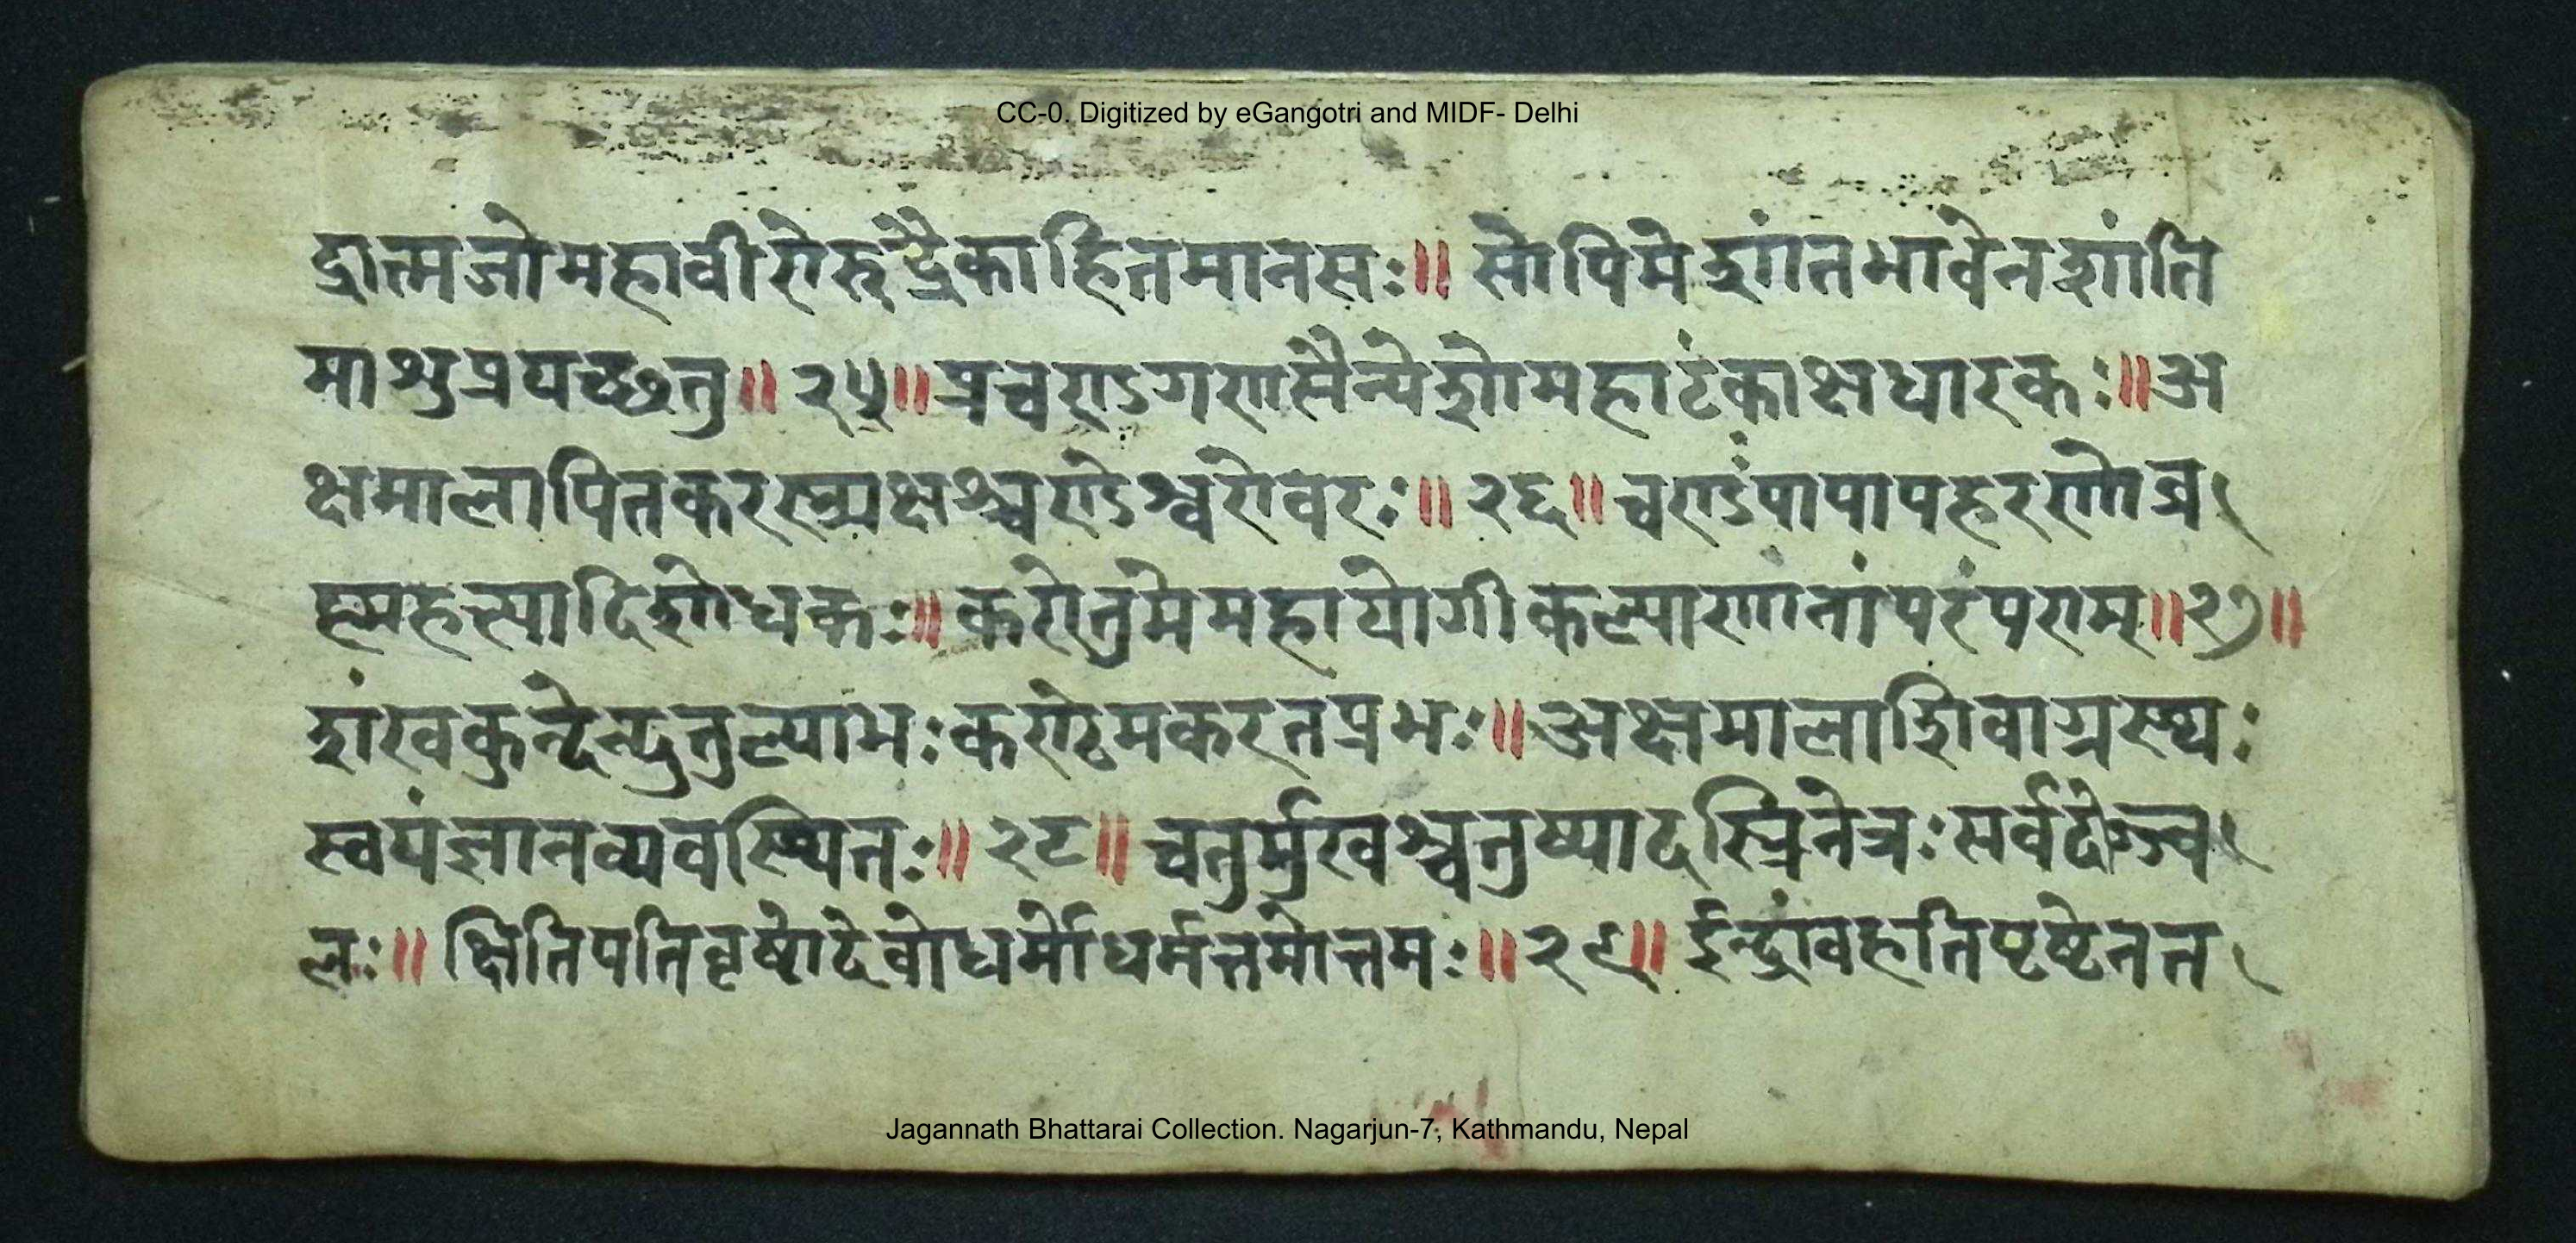 CC-0. Digitized by eGangotri and MIDF- Delhi
द्रात्मजोमहावीरोरुद्रैकाहितमानसः॥ सोपिमेशांतभावेनशांति
माशुप्रयच्छतु॥ २५॥ प्रचण्डगणसैन्येशोमहाटंकाक्षधारकः॥ अ
क्षमालार्पितकरस्त्र्यक्षश्चण्डेश्वरोवरः॥ २६॥ चण्डंपापापहरणोब्र
ह्महत्यादिशोधकः॥ करोतुमेमहायोगीकल्याणानांपरंपराम्॥ २७॥
शंखकुन्देन्दुतुल्याभःकण्ठेमकरतप्रभः॥ अक्षमालाशिवाग्रस्थः
स्वयंज्ञानव्यवस्थितः॥ २८॥ चतुर्मुखश्चतुष्पादस्त्रिनेत्रःसर्वदोज्ज्व
लः॥ क्षितिपतिवृषोदेवोधर्मोधर्मत्तमोत्तमः॥ २९॥ ईन्द्रांवहतिपृष्टेनत
Jagannath Bhattarai Collection. Nagarjun-7, Kathmandu, Nepal